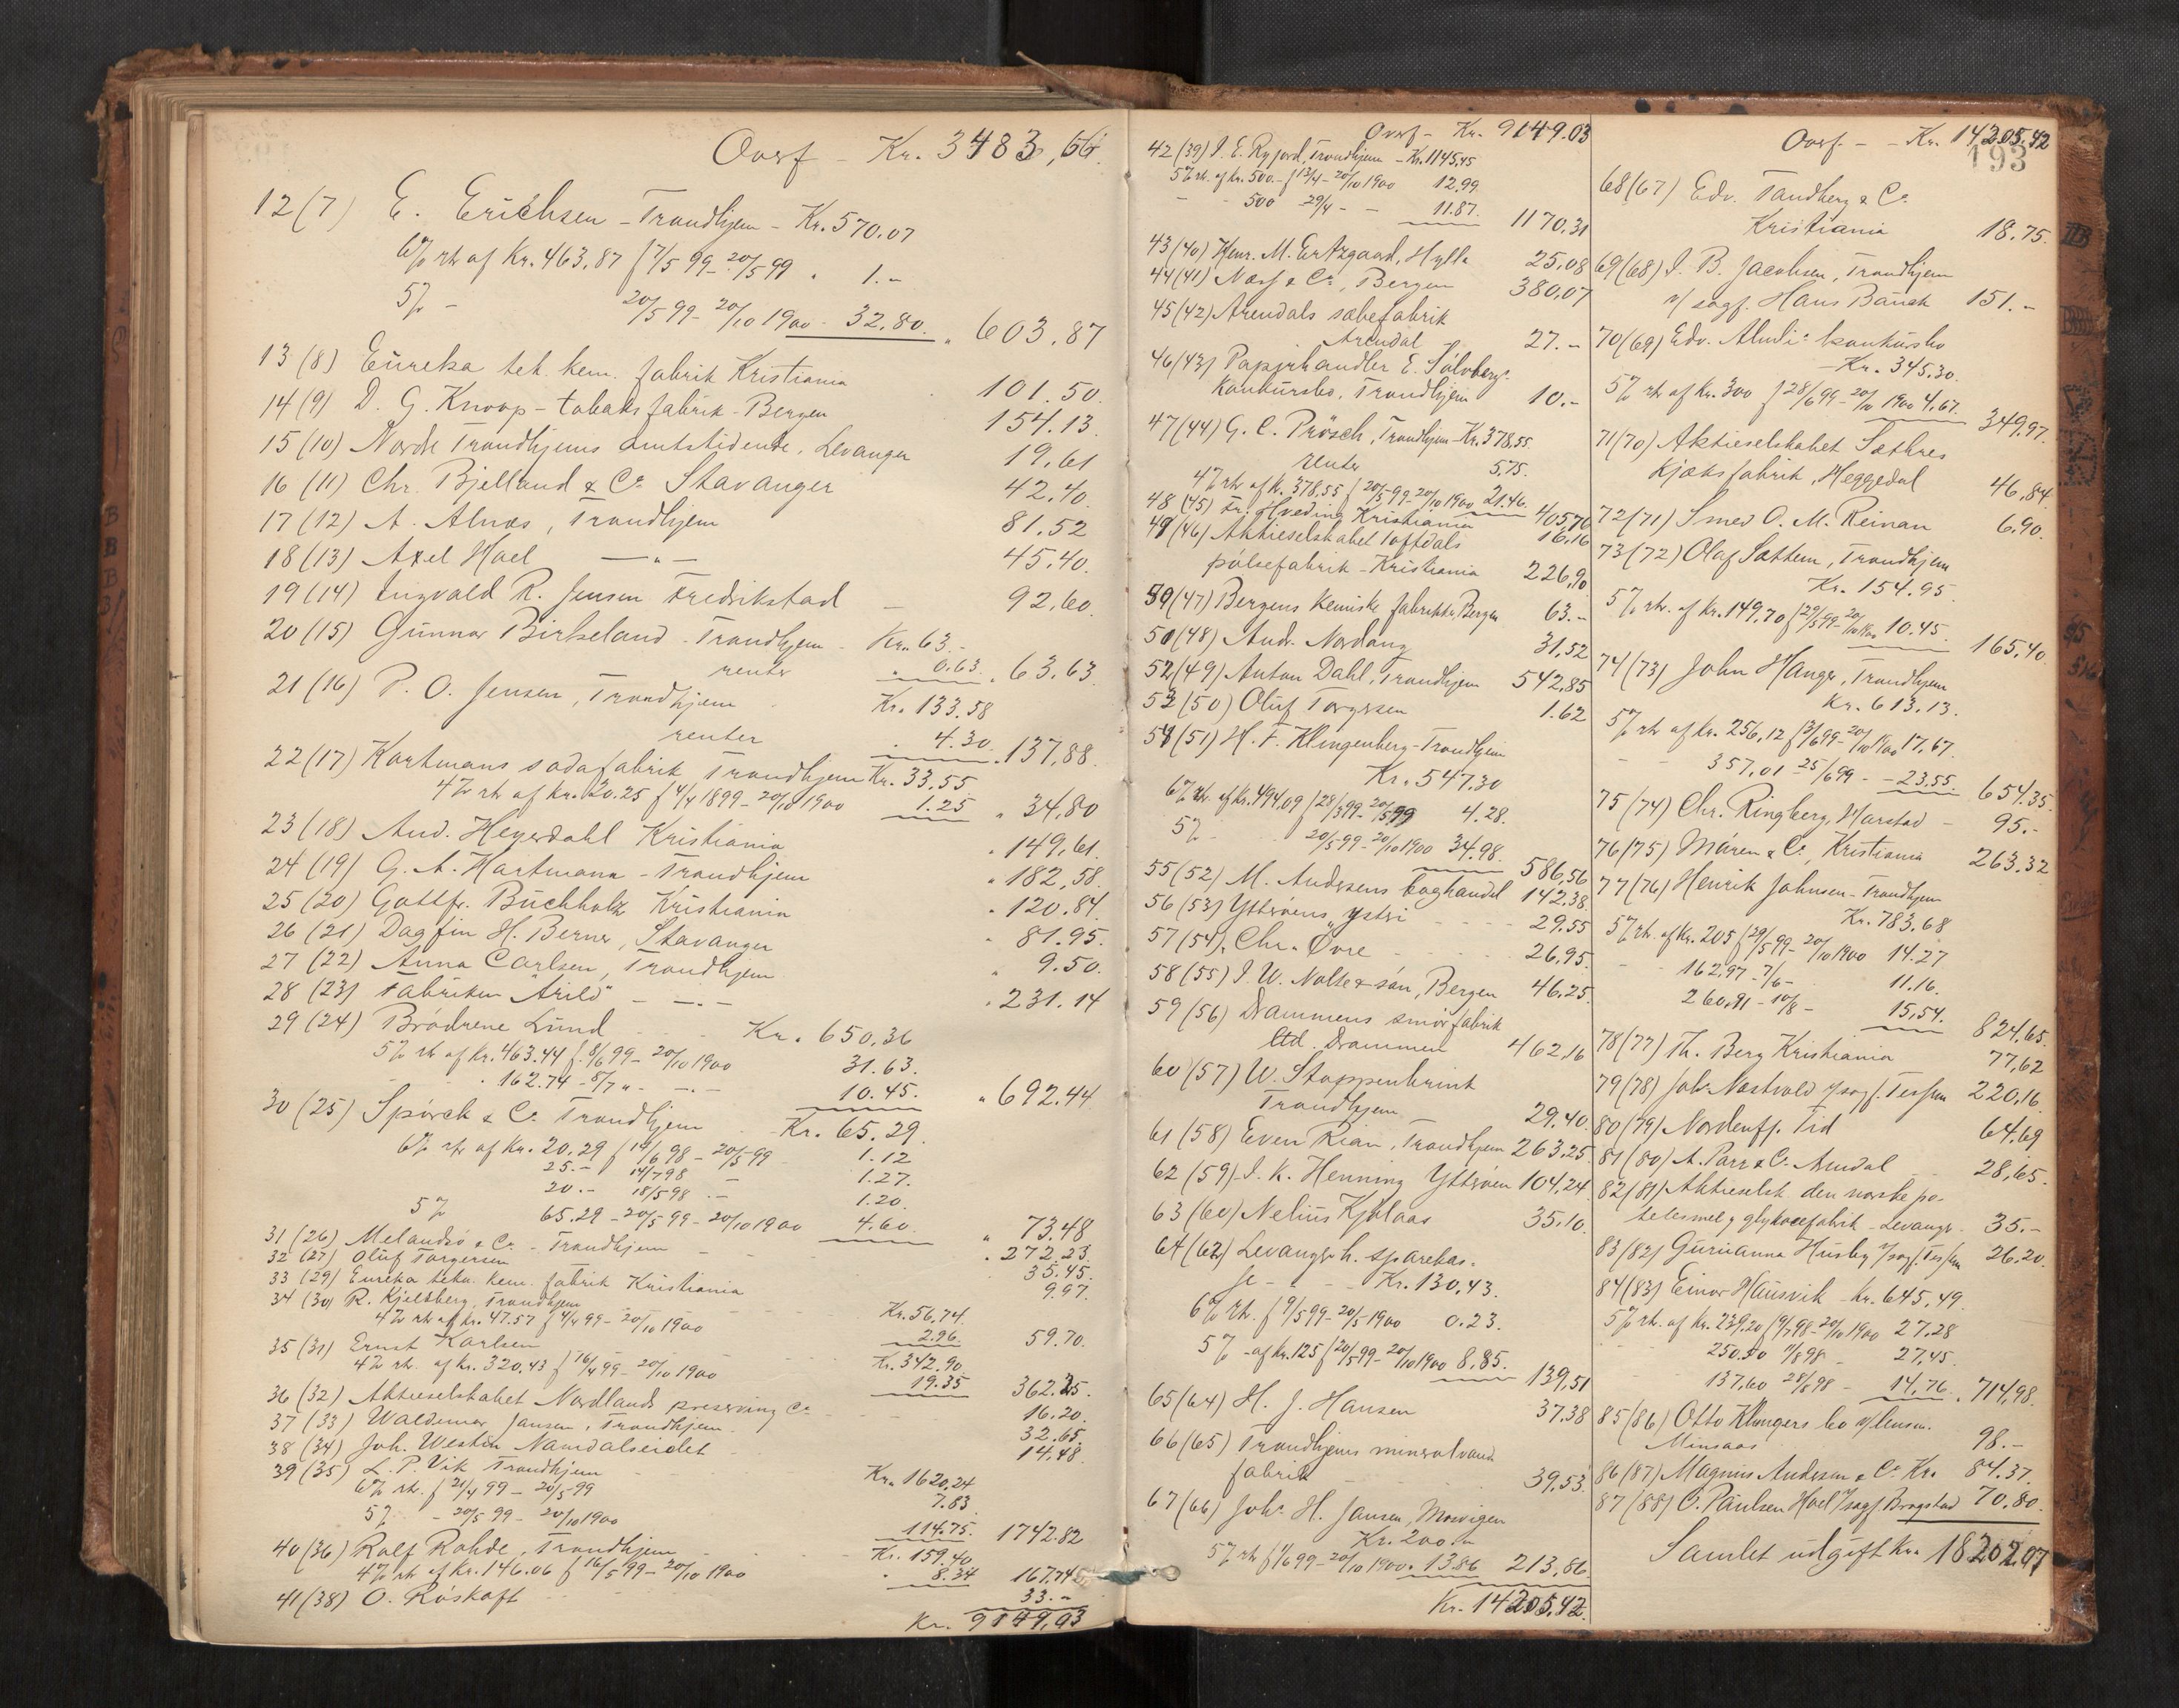 Overf - Kr. 3483,66.
12 (7) E. Erichsen - Trondhjem - Kr. 570.07
6% rtr af Kr. 463,87 f 7/5 99 - 20/5 99 " 1.-
5% - 20/5 99 - 20/10 1900 - 32,80. " 603.87
13 (8) Eureka tek. kem. fabrik Kristiania 101.50.
14 (9) D. G. Knoop - tobaksfabrik - Bergen 154.13.
15 (10) Nordre Trondhjems amtstidende, Levanger 19.61
16 (11) Chr. Bjelland & Co Stavanger 42.40.
17 (12) A. Alnæs, Trondhjem 81.52
18 (13) Axel Hoel — " — 45.40.
19 (14) Ingvald R. Jensen Fredrikstad - 92,60.
20 (15) Gunnar Birkeland - Trondhjem - Kr. 63.-
renter " 0.63. " 63.63.
21 (16) P. O. Jensen, Trondhjem Kr. 133.58
renter " 4.30. " 137,88.
22 (17) Kortmans sodafabrik Trondhjem Kr. 33,55.
4% rtr af Kr. 20.25 f 4/4 1899 - 20/10 1900 1.25 " 34,80
23 (18) And. Heyerdahl Kristiania " 149,61.
24 (19) G. A. Hartmann - Trondhjem " 182,58.
25 (20) Gottfr. Buchholtz Kristiania " 120.84.
26 (21) Dagfin H. Berner, Stavanger " 81.95.
27 (22) Anna Carlsen, Trondhjem " 9.50.
28 (23) Fabriken "Arild" - — " — " 231.14
29 (24) Brødrene Lund Kr. 650,36
5% rtr af Kr. 463.44 f. 8/6 99 - 20/10 1900 31.63.
" 162.74 - 8/7 " - — " — 10.45. " 692.44
30 (25) Spørck & Co Trondhjem - Kr. 65.29.
6% rtr af Kr. 20.29 f 14/6 98 - 20/5 99 1.12
25.- f 14/7 98 - 1.27.
20.- 18/5 98 - 1.20.
5% 65.29 - 20/5 99 - 20/10 1900 4.60. " 73.48
31 (26) Melandsø & Co - Trondhjem - - " 272.23.
32 (27) Oluf Torgersen 35.45.
33 (29) Eureka tekn. kem. fabrik Kristiania 9.97.
34 (30) R. Kjeldsberg, Trondhjem Kr. 56,74.
4% rtr af Kr. 47.57 f 4/4 99 - 20/10 1900 2.96. 59.70.
35 (31) Ernst Karlsen Kr. 342.90
4% rtr. af Kr. 320.43 f 16/4 99 - 20/10 1900 19.35 362.25.
36 (32) Aktieselskabet Nordlands preserving Co 16.20.
37 (33) Waldemar Jansen, Trondhjem 32.65.
38 (34) Joh. Westin Namdalseidet 14.48.
39 (35) L. P. Vik Trondhjem Kr. 1620,24
6% rtr. f 21/4 99 - 20/5 99 7.83
5% - 20/5 99 - 20/10 1900 114.75. 1742.82
40 (36) Rolf Rohde, Trondhjem Kr. 159.40
4% rtr af Kr. 146.06 f 16/5 99 - 20/10 1900 " 8.34 167.74
41 (38) O. Røskaft 33.-
Kr. 9149,03
Overf - Kr. 9149.03
42 (39) J. E. Ryjord, Trondhjem - Kr. 1145,45
5% rtr. af Kr. 500.- f 13/4 - 20/10 1900 12.99.
- - 500 29/4 - - 11.87. 1170.31
43 (40) Henr. M. Ertzgaard, Hylla 25,08
44 (41) Næss & Co, Bergen 380,07
45 (42) Arendals sæbefabrik
Arendal 27.-
46 (43) Papirhandler E. Sølvbergs
konkursbo, Trondhjem 10.-
47 (44) G. C. Prøsch, Trondhjem - Kr. 378,55.
renter 5,75.
4% rtr af Kr. 378,55 f 20/5 99 - 20/10 1900 21.46. 405,76
48 (45) Fr. Hveding Kristiania 16.16
49 (46) Aktieselskabet Toftdals
pølsefabrik - Kristiania 226,90
50 (47) Bergens kemiske fabrikker Bergen 63.-
51 (48) Andr. Nordang 31,52
52 (49) Anton Dahl, Trondhjem 542,85
53 (50) Oluf Torgersen 1.62
54 (51) H. F. Klingenberg - Trondhjem
Kr. 547.30
6% rtr. af Kr. 494,09 f 28/3 99 - 20/5 99 4.28.
5% 20/5 99 - 20/10 1900 34.98. 586,56
55 (52) M. Andersens boghandel 142.38.
56 (53) Ytterøens ysteri 29.55
57 (54) Chr. Øvre 26,95.
58 (55) J. W. Nolte & søn, Bergen 46.25.
59 (56) Drammens smørfabrik
ltd. Drammen 462,16
60 (57) W. Stoppenbrink
Trondhjem 29.40.
61 (58) Even Rian, Trondhjem 263.25.
62 (59) J. K. Henning Ytterøen 104,24
63 (60) Nelius Kjølaas 35.10.
64 (62) Levanger h. sparekas-
se - - - Kr. 130,43.
6% rtr. f 9/5 99 - 20/5 1900 0.23.
5% - af Kr. 125 f 20/5 99 - 20/10 1900 8,85. 139,51
65 (64) H. J. Hansen 37.38
66 (65) Trondhjems mineralvand
fabrik 39,53.
67 (66) Johs H. Jansen, Mosvigen
Kr. 200.-
5% rtr f 1/6 99 - 20/10 1900 " 13.86 213,86.
Kr. 14205,42.
Overf. - - Kr. 14,205,42
193
68 (67) Edv. Tandberg & Co
Kristiania 18.75.
69 (68) J. B. Jacobsen, Trondhjem
v/ sagf. Hans Bauck 151.-
70 (69) Edv. Almlis konkursbo
- Kr. 345.30.
5% rtr af Kr. 300 f 28/6 99 - 20/10 1900 4.67. 349,97.
71 (70) Aktieselskabet Sætres
kjæksfabrik, Heggedal 46,84
72 (71) Smed O. M. Reinan 6.90.
73 (72) Olaf Sættem, Trondhjem
Kr. 154.95.
5% rtr. af Kr. 149,70 f 29/5 99 - 20/10 1900 10.45. 165,40.
74 (73) John Hanger, Trondhjem
Kr. 613,13.
5% rtr af Kr. 256,12 f 3/6 99 - 20/10 1900 17.67.
- - 357,01 - 25/6 99 - - 23.55. 654.35.
75 (74) Chr. Ringberg, Harstad - 95.-
76 (75) Müren & Co, Kristiania 263.32
77 (76) Henrik Johnsen - Trondhjem
Kr. 783.68
5% rtr. af Kr. 205 f 29/5 99 - 20/10 1900 14.27
- - 162,97 - 7/6 - 11.16.
260,91 - 10/8 - 15,54. 824,65.
78 (77) Th. Berg Kristiania 77,62
79 (78) Johs Næstvold v/ sagf. Tessem 220,16.
80 (79) Nordenfj. Tid 64,69
81 (80) A. Parr & Co. Arendal 28,65.
82 (81) Aktieselsk den norske po-
tetesmel & glykosefabrik - Levanger - 35.-
83 (82) Gurianna Husby v/ sagf. Tessem 26.20.
84 (83) Einar Hausvik - Kr. 645,49.
5% rtr. af Kr. 239.20 f 9/7 98 - 20/10 1900 27.28
- - 250.50 11/8 98 - 27,45.
137,60 28/8 98 - 14,76. " 714,98.
85 (86) Otto Klungers bo v/ lensm.
Minsaas 98.-
86 (87) Magnus Andersen & Co Kr. 84.37.
87 (88) O. Paulsen Hoel v/ sagf. Brogstad 70.80.
Samlet udgift Kr. 18202.07